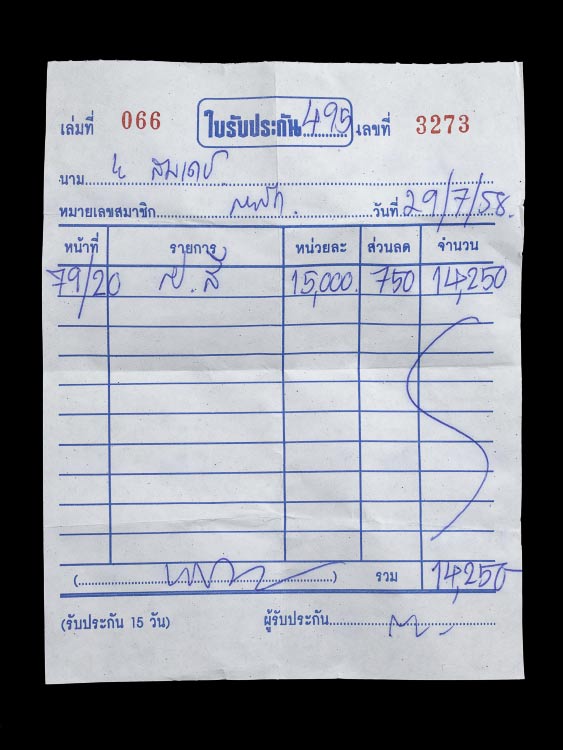 เล่มที่ 066 ใบรับประกัน 495 เลขที่ 3273
นาม
หมายเลขสมาชิก วันที่ 29/7/58.
หน้าที่ รายการ หน่วยละ ส่วนลด จำนวน
79/20 15,000. 750 14,250
รวม 14,250
(รับประกัน 15 วัน) ผู้รับประกัน